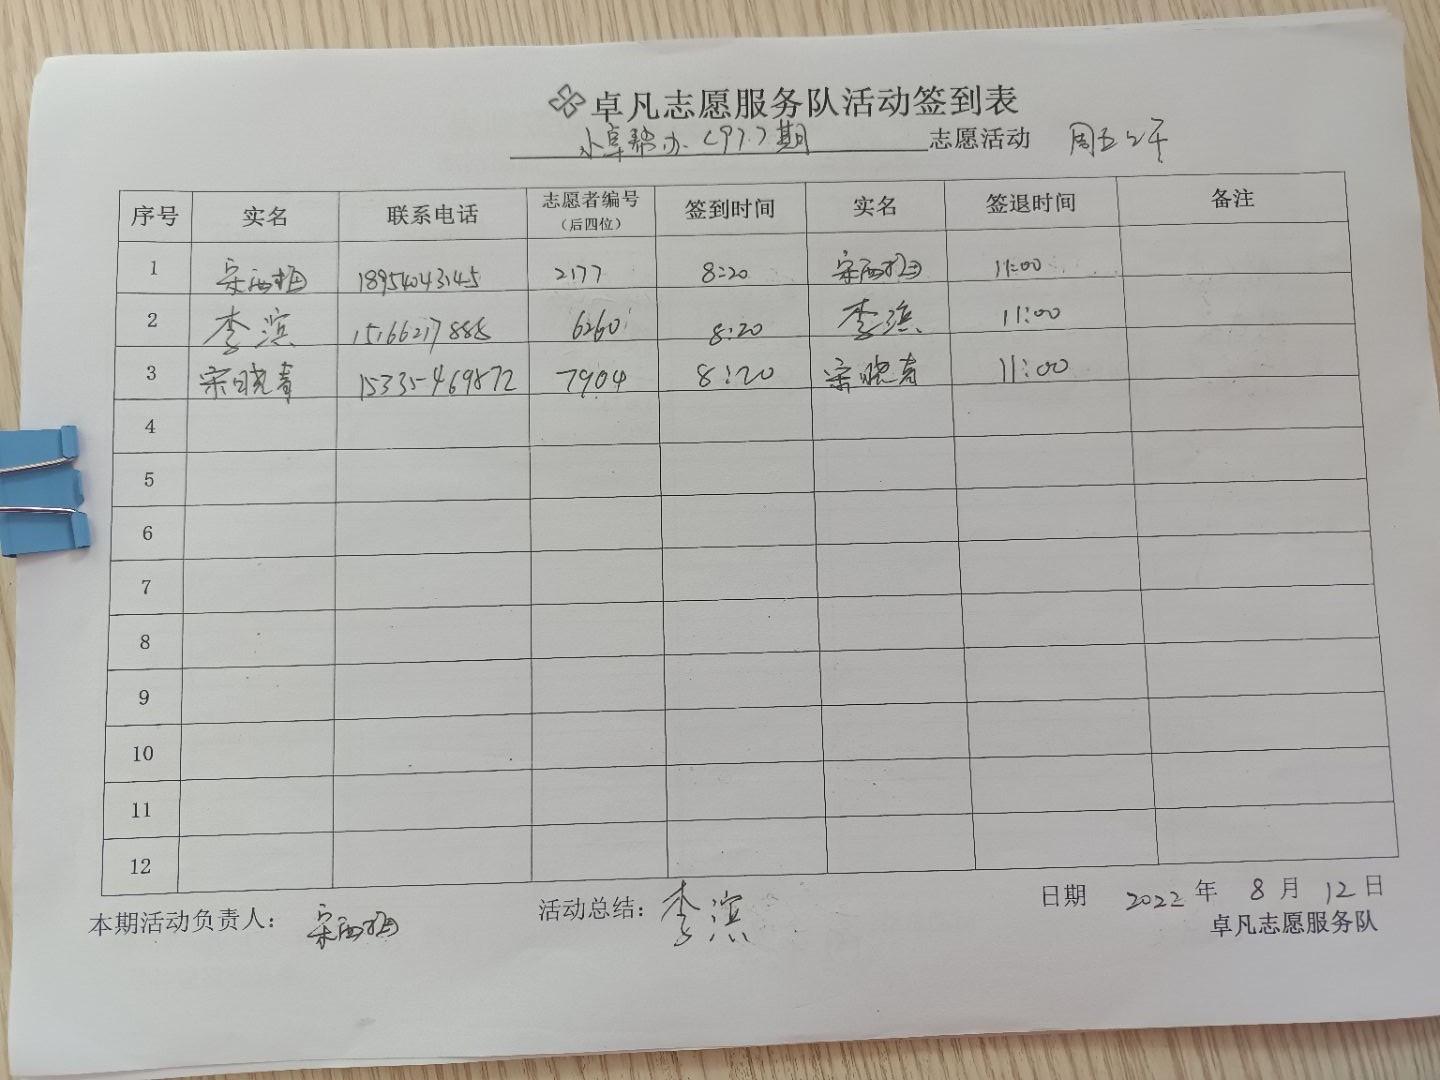 卓凡志愿服务队活动签到表
小卓帮办(97)期 志愿活动 周五上午
序号 实名 联系电话 志愿者编号(后四位) 签到时间 实名 签退时间 备注
1 宋 18954043145 2177 8:20 宋 11:00
2 李滨 15166217888 6260 8:20 李滨 11:00
3 宋晓青 15335469872 7904 8:20 宋晓青 11:00
4
5
6
7
8
9
10
11
12
本期活动负责人: 宋 活动总结: 李滨 日期 2022年8月12日
卓凡志愿服务队